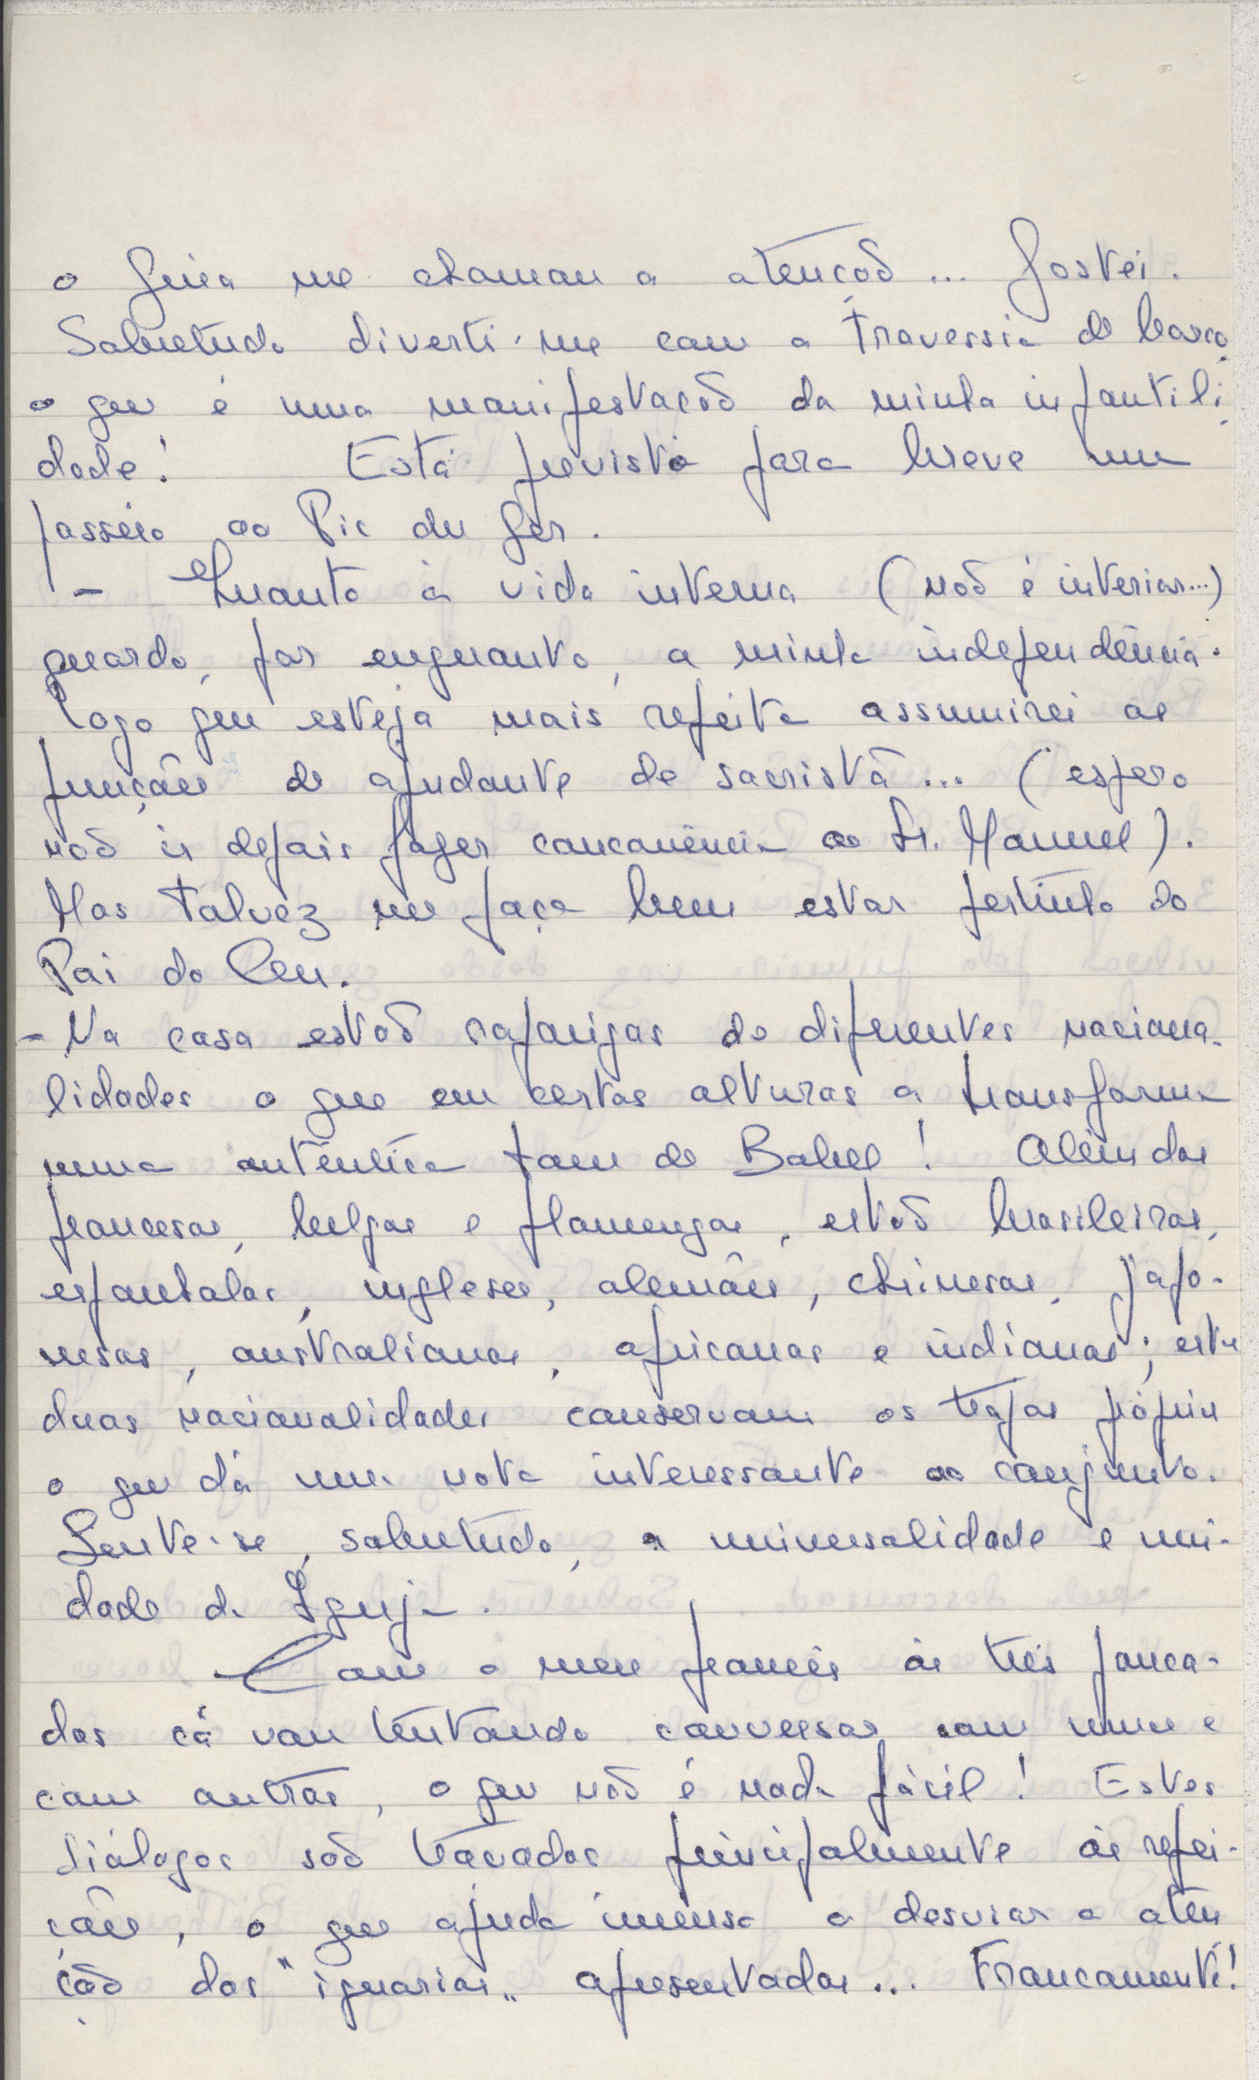 o guia me chamou a atenção... Gostei.
Sobretudo diverti-me com a travessia de barco,
o que é uma manifestação da minha infantili-
dade! Está previsto para breve um
passeio ao Pic du Ger.
- Quanto à vida interna (não é interior...)
guardo, por enquanto, a minha independência.
Logo que esteja mais refeita assumirei as
funções de ajudante de sacristã... (espero
não ir depois fazer concorrência ao Sr. Manuel).
Mas talvez me faça bem estar pertinho do
Pai do Céu.
- Na casa estão raparigas de diferentes naciona-
lidades o que em certas alturas a transforma
numa autêntica torre de Babel! Além das
francesas, belgas e flamengas, estão brasileiras,
espanholas, inglesas, alemãs, chinesas, japo-
nesas, australianas, africanas e indianas; estas
duas nacionalidades conservam os trajos próprios
o que dá uma nota interessante ao conjunto.
Sente-se, sobretudo, a universalidade e uni-
dade da Igreja.
Com o meu francês às três panca-
das cá vou tentando conversar com umas e
com outras, o que não é nada fácil! Estes
diálogos são travados principalmente às refei-
ções, o que ajuda imenso a desviar a aten
ção das "iguarias" apresentadas... Francamente!